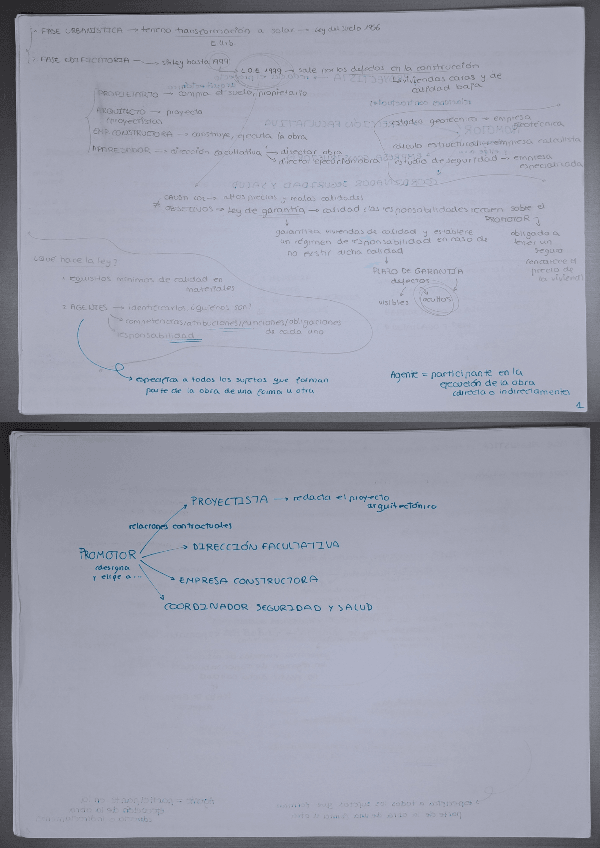 FASE URBANISTICA → terreno transformación a solar → Ley del suelo 1956
FASE EDIFICATORIA → sin ley hasta 1999
L.O.E. 1999 → sale por los defectos en la construcción
viviendas caras y de
calidad baja
→ compra el suelo, propietario
ARQUITECTO → proyecto
(proyectista)
estudio geotécnico → empresa
geotécnica
EMP. CONSTRUCTORA → construye, ejecuta la obra
APAREJADOR → dirección facultativa
director obra
director ejecución obra
estudio de seguridad → empresa
especializada
→ altos precios y malas calidades
→ Ley de garantía → calidad y las responsabilidades recaen sobre el
PROMOTOR
garantiza viviendas de calidad y establece
un régimen de responsabilidad en caso de
no existir dicha calidad
obligado a
tener un
seguro
PLAZO DE GARANTÍA
defectos
visibles
ocultos
¿Qué hace la ley?
1. regula los mínimos de calidad en
materiales
2. AGENTES → identificarlos ¿quiénes son?
competencias/atribuciones/funciones/obligaciones
de cada uno
responsabilidad
especifica a todos los sujetos que forman
parte de la obra de una forma u otra
Agente = participante en la
ejecución de la obra
(directa o indirectamente)
1
PROYECTISTA → redacta el proyecto
arquitectónico
relaciones contractuales
DIRECCIÓN FACULTATIVA
PROMOTOR
(designa
y elige a...
EMPRESA CONSTRUCTORA
COORDINADOR SEGURIDAD Y SALUD